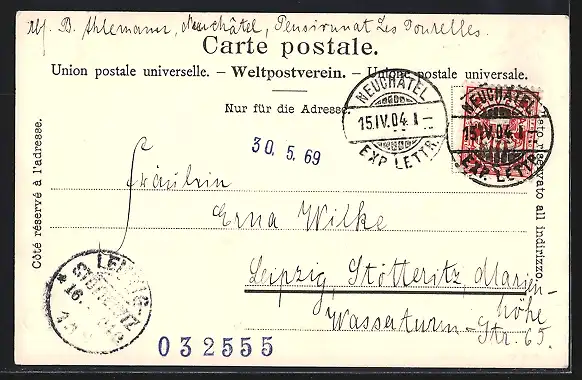 Abs. B. Ahlemann, Neuchâtel, Pensionnat Les Tourelles.
Carte postale.
Union postale universelle. – Weltpostverein. – Unione postale universale.
Nur für die Adresse.
NEUCHATEL
15.IV.04.I–
EXP. LETTR.
NEUCHATEL
15.IV.04.I–
EXP. LETTR.
30.5.69
Côté réservé à l'adresse.
Lato riservato all indirizzo.
Fräulein
Erna Wilke
Leipzig, Stötteritz, Marien-
höhe
Wasserturm-Str. 65.
LEIPZIG-
STÖTTERITZ
16.
032555